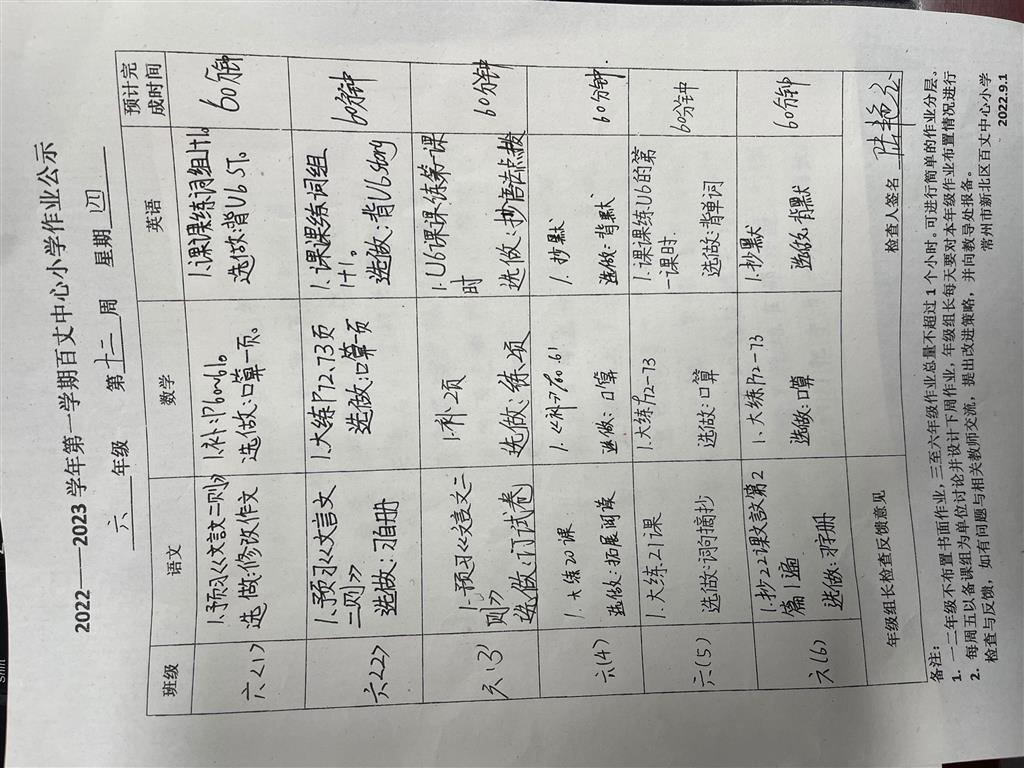 2022——2023 学年第一学期百丈中心小学作业公示
六 年级 第 十二 周 星期 四
班级 语文 数学 英语 预计完成时间
六<1>
1.预习《文言文二则》
选做:修改作文
1.补:P60~61。
选做:口算一页。
1.课课练词组1+1。
选做:背U6 ST。
60分钟
六<2>
1.预习《文言文
二则》
选做:习自册
1.大练P72、73页
选做:口算一页
1.课课练词组
1+1。
选做:背U6 story
60分钟
六(3)
1.预习《文言文二
则》
选做:订试卷
1.补2页
选做:练2页
1.U6课课练第一课
时
选做:抄语法点拨
60分钟
六(4)
1.大练20课
选做:拓展阅读
1.《补》P60.61
选做:口算
1.抄默
选做:背默
60分钟
六(5)
1.大练21课
选做:词句摘抄
1.大练P72-73
选做:口算
1.课课练U6的第
一课时.
选做:背单词
60分钟
六(6)
1.抄22课文言文第2
篇1遍
选做:习字册
1.大练P72-73
选做:口算
1.抄默
选做:背默
60分钟
年级组长检查反馈意见
检查人签名
备注:
1. 一二年级不布置书面作业,三至六年级作业总量不超过 1 个小时。可进行简单的作业分层。
2. 每周五以备课组为单位讨论并设计下周作业,年级组长每天要对本年级作业布置情况进行
检查与反馈,如有问题与相关教师交流,提出改进策略,并向教导处报备。
常州市新北区百丈中心小学
2022.9.1